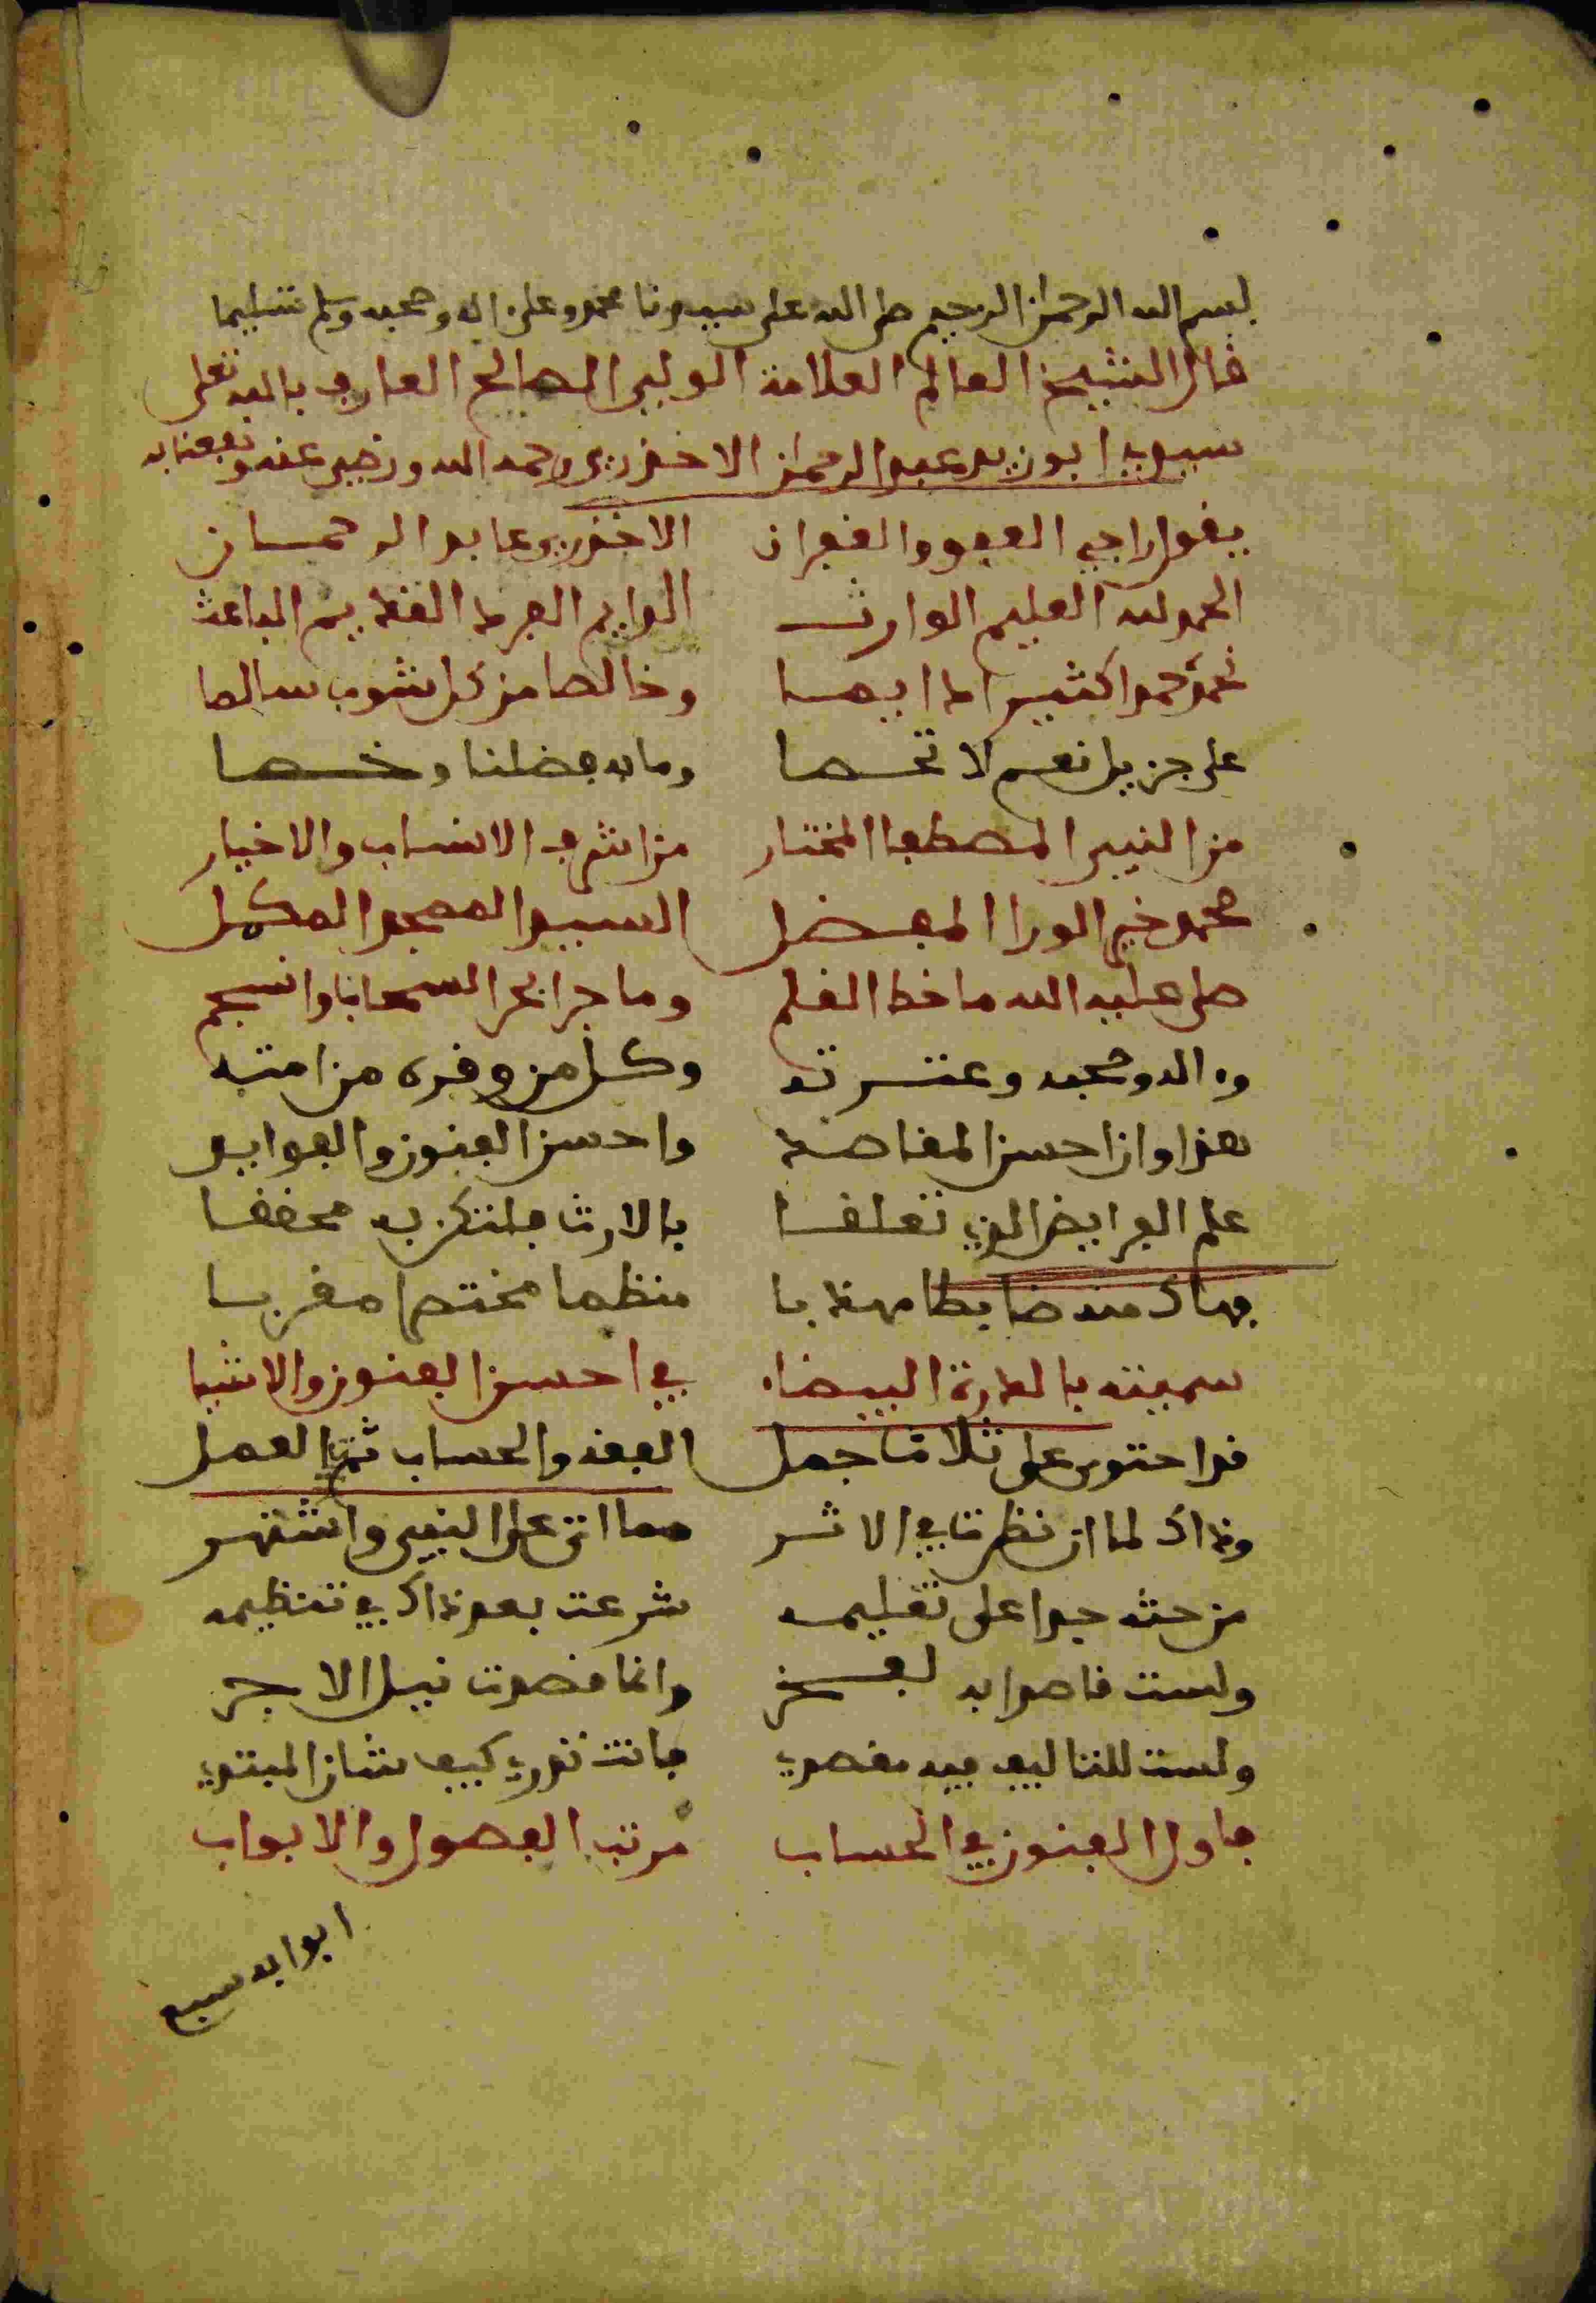 بسم الله الرحمن الرحيم صلى الله على سيدنا محمد وعلى اله وصحبه وسلم تسليما
قال الشيخ العالم العلامة الولي الصالح العارف بالله تعلى
سيدي ابو زيد عبد الرحمن الاخضري رحمه الله ورضي عنه ونفعنا به
يقول راجي العفو والغفران الاخضري عابد الرحمان
الحمد لله العليم الوارث الدايم الفرد القديم الباعث
نحمده حمدا كثيرا دايما وخالصا من كل شوب سالما
على جزيل نعم لا تحصا وما به فضلنا وخصا
من النبي المصطفا المختار من اشرف الانساب والاخيار
محمد خير الورا المفضل السيد الممجد المكمل
صلى عليه الله ما خط القلم وما جرا بحر السحاب وانسجم
وءاله وصحبه وعترته وكل من وقره من امته
هذا وان احسن المقاصد واحسن الفنون والفوايد
علم الفرايض الذي تعلقا بالارث فلتكن به محققا
فهاك منه ضابطا مهذبا منظما مختصرا مقربا
سميته بالدرة البيضاء في احسن الفنون والاشيا
قد احتوى على ثلاث جمل الفقه والحساب ثم العمل
وذاك لما ان نظرت في الاثر مما اتى على النبي واشتهر
من حثه جدا على تعليمه شرعت بعد ذاك في تنظيمه
ولست قاصدا به لفخر وانما قصدت نيل الاجر
ولست للتاليف فيه مقصدي فانت تدري كيف شان المبتدي
فاول الفنون في الحساب مرتب الفصول والابواب
ابوابه سبع